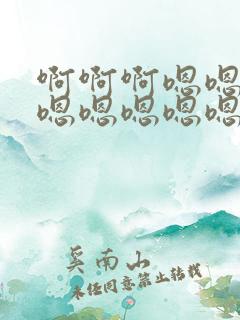 啊啊啊嗯嗯
嗯嗯嗯嗯嗯
奚南山
未经同意禁止转载